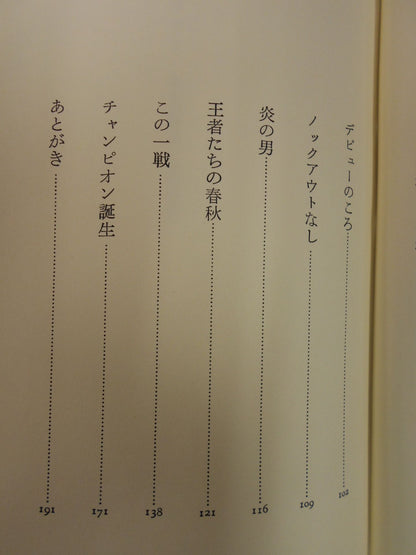 デビューのころ……102
ノックアウトなし……109
炎の男……116
王者たちの春秋……121
この一戦……138
チャンピオン誕生……171
あとがき……191